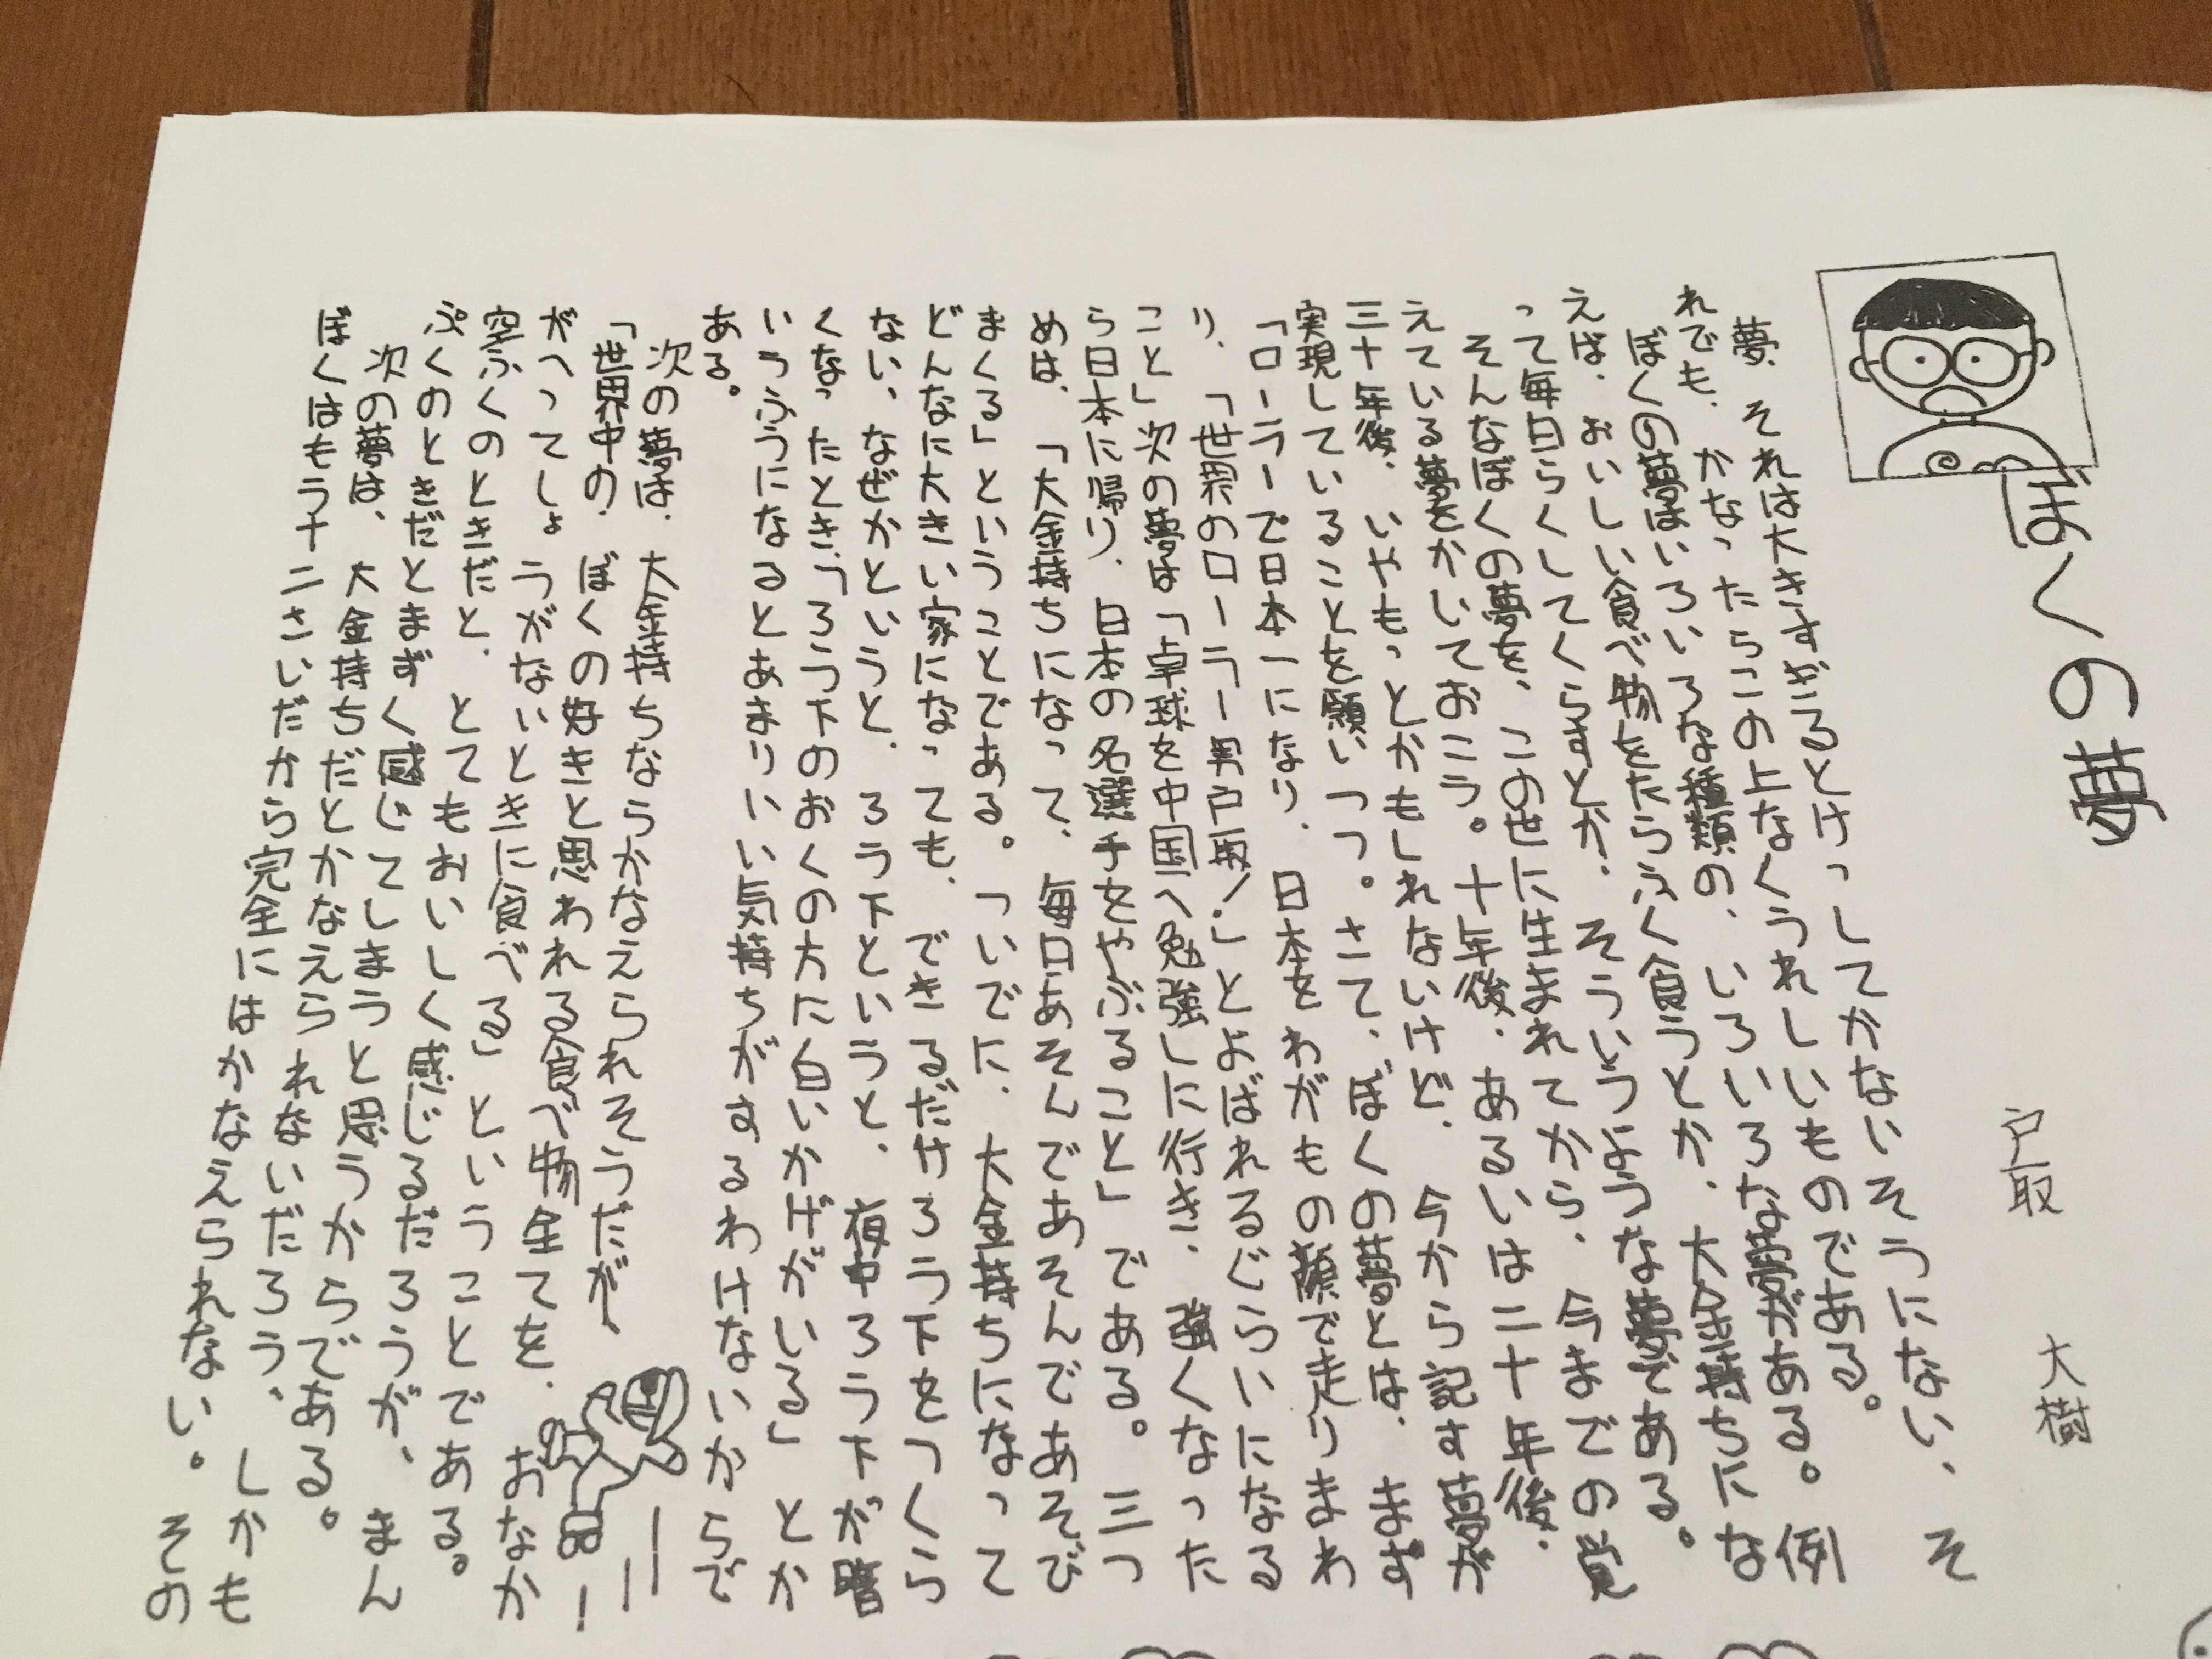 ぼくの夢
戸取 大樹
夢、それは大きすぎるとけっしてかないそうにない、そ
れでも、かなったらこの上なくうれしいものである。
ぼくの夢はいろいろな種類の、いろいろな夢がある。例
えば、おいしい食べ物をたらふく食うとか、大金持ちにな
って毎日らくしてくらすとか、そういうような夢である。
そんなぼくの夢を、この世に生まれてから、今までの覚
えている夢をかいておこう。十年後、あるいは二十年後、
三十年後、いやもっとかもしれないけど、今から記す夢が
実現していることを願いつつ。さて、ぼくの夢とは、まず
「ローラーで日本一になり、日本をわがもの顔で走りまわ
り、「世紀のローラー野郎」とよばれるぐらいになる
こと」次の夢は「卓球を中国へ勉強しに行き、強くなった
ら日本に帰り、日本の名選手をやぶること」である。三つ
めは、「大金持ちになって、毎日あそんであそんであそび
まくる」ということである。ついでに、大金持ちになって
どんなに大きい家になっても、できるだけろう下をつくら
ない、なぜかというと、ろう下というと、夜中ろう下が暗
くなったとき「ろう下のおくの方に白いかげがいる」とか
いうふうになるとあまりいい気持ちがするわけないからで
ある。
次の夢は、大金持ちならかなえられそうだが、
「世界中の、ぼくの好きと思われる食べ物全てを、おなか
がへってしょうがないときに食べる」ということである。
空ふくのときだと、とてもおいしく感じるだろうが、まん
ぷくのときだとまずく感じてしまうと思うからである。
次の夢は、大金持ちだとかなえられないだろう、しかも
ぼくはもう十二さいだから完全にはかなえられない。その